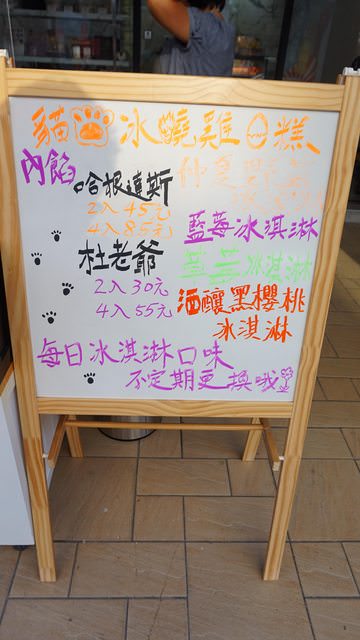 貓冰燒雞蛋糕
內餡
哈根達斯
2入45元
4入85元
杜老爺
2入30元
4入55元
仲夏
藍莓冰淇淋
冰淇淋
酒釀黑櫻桃
冰淇淋
每日冰淇淋口味
不定期更換哦